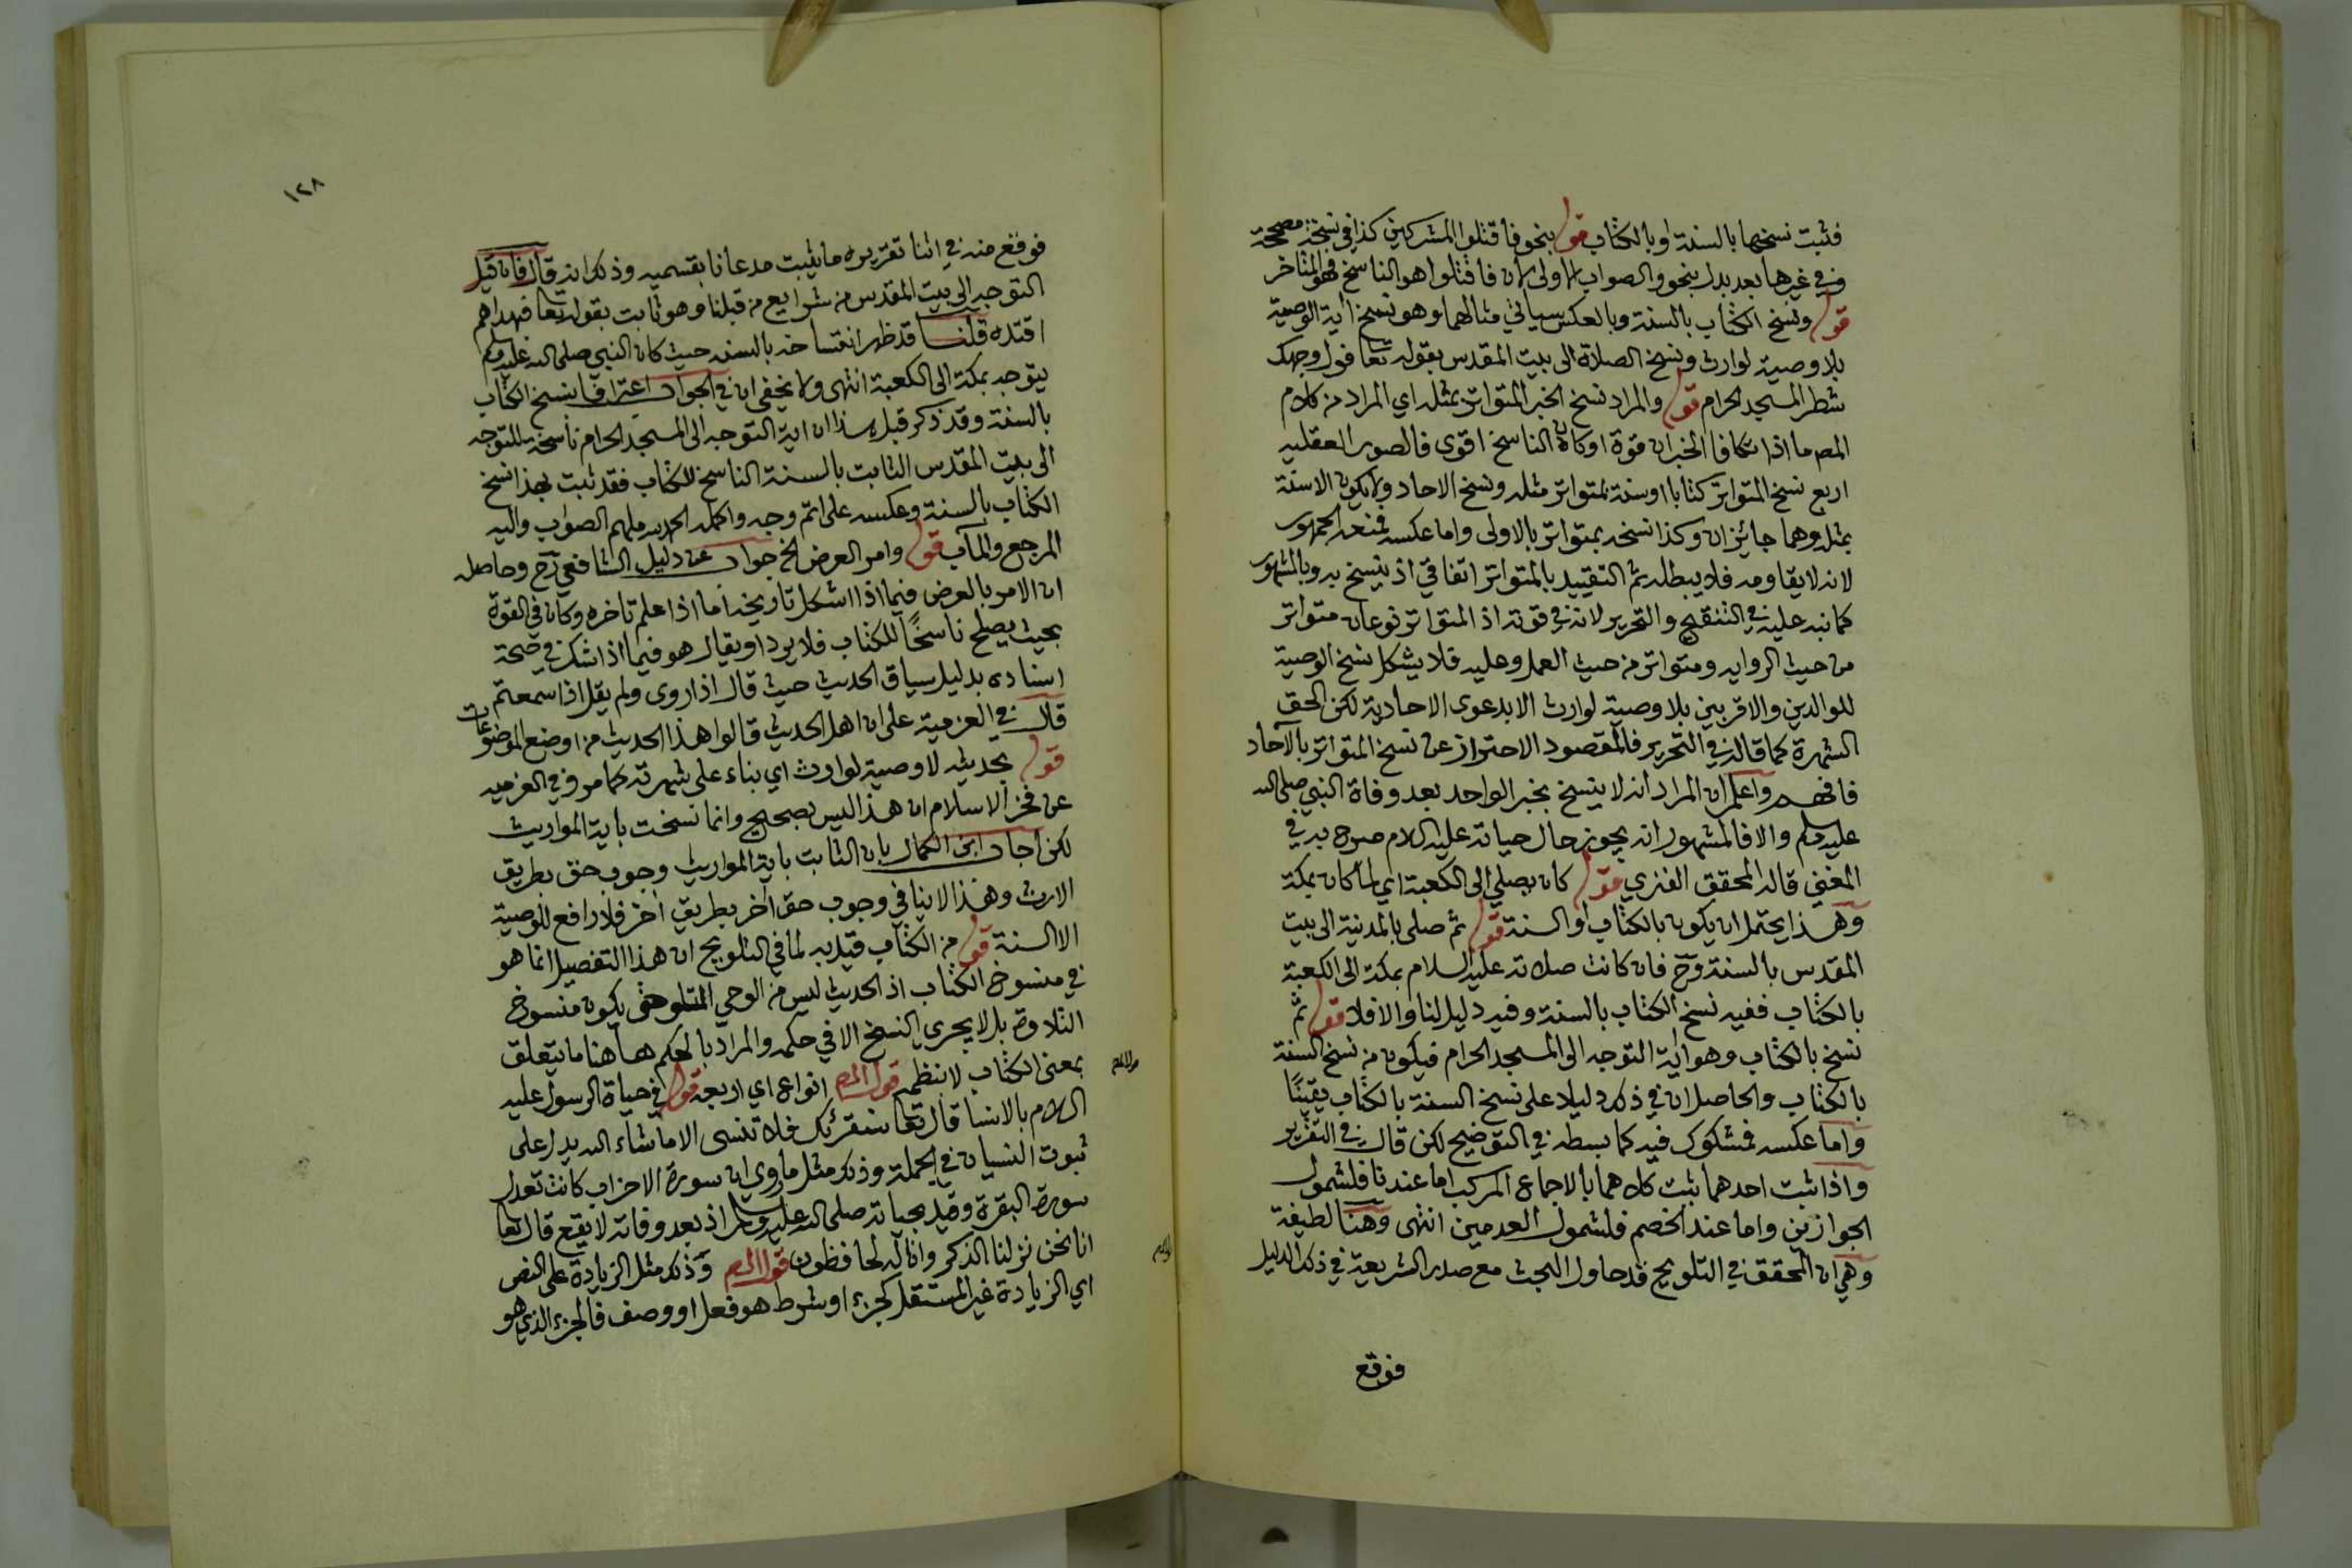 فثبت نسخها بالسنة او بالكتاب قوله بنحو فاقتلوا المشركين كذا في نسخة مصححة
وفي غيرها بعد بدل بنحو والصواب الاولى لان فاقتلوا هو الناسخ فهو المتاخر
قوله ونسخ الكتاب بالسنة وبالعكس سياتي مثالهما وهو نسخ اية الوصية
بلا وصية لوارث ونسخ الصلاة الى بيت المقدس بقوله تعا فول وجهك
شطر المسجد الحرام قوله والمراد نسخ الخبر المتواتر بمثله اي المراد من كلام
المص ما اذا تكافا الخبران قوة او كان الناسخ اقوى فالصور العقليه
اربع نسخ المتواتر كتابا او سنة بمتواتر مثله ونسخ الاحاد ولا يكون الا سنة
بمثله وهما جائزان وكذا نسخه بمتواتر بالاولى واما عكسه فمنعه الجمهور
لانه لا يقاومه فلا يبطله ثم التقييد بالمتواتر اتفاقي اذ ينسخ به وبالمشهور
كما نبه عليه في التنقيح والتحرير لانه في قوته اذ المتواتر نوعان متواتر
من حيث الروايه ومتواتر من حيث العمل وعليه فلا يشكل نسخ الوصية
للوالدين والاقربين بلا وصية لوارث الا بدعوى الاحادية لكن الحق
الشهرة كما قاله في التحرير فالمقصود الاحتراز عن نسخ المتواتر بالآحاد
فافهم واعلم ان المراد انه لا ينسخ بخبر الواحد بعد وفاة النبي صلى الله
عليه وسلم والا فالمشهور انه يجوز حال حياته عليه السلام صرح به في
المغني قاله المحقق الفنري قوله كان يصلي الى الكعبة اي لما كان بمكة
وهذا يحتمل ان يكون بالكتاب او السنة قوله ثم صلى بالمدينة الى بيت
المقدس بالسنة وح فان كانت صلاته عليه السلام بمكة الى الكعبة
بالكتاب ففيه نسخ الكتاب بالسنة وفيه دليل لنا والا فلا قوله ثم
نسخ بالكتاب وهو اية التوجه الى المسجد الحرام فيكون من نسخ السنة
بالكتاب والحاصل ان في ذلك دليلا على نسخ السنة بالكتاب يقينًا
واما عكسه فمشكوك فيه كما بسطه في التوضيح لكن قال في التقرير
واذا ثبت احدهما ثبت كلاهما بالاجماع المركب اما عندنا فلشمول
الجوازين واما عند الخصم فلشمول العدمين انتهى وهنا لطيفة
وهي ان المحقق في التلويح قد حاول البحث مع صدر الشريعة في ذكر الدليل
فوقع
١٢٨
فوقع منه في اثنا تقريره ما يثبت مدعانا بقسميه وذلك انه قال فان قيل
التوجه الى بيت المقدس من شرايع من قبلنا وهو ثابت بقوله تعا فبهداهم
اقتده قلنا قد ظهر انتساخه بالسنه حيث كان النبي صلى الله عليه وسلم
يتوجه بمكة الى الكعبة انتهى ولا يخفى ان في الجواب اعترافا بنسخ الكتاب
بالسنة وقد ذكر قبل هذا ان اية التوجه الى المسجد الحرام ناسخة للتوجه
الى بيت المقدس الثابت بالسنة الناسخ للكتاب فقد ثبت بهذا نسخ
الكتاب بالسنة وعكسه على اتم وجه واكمله الحمد لله ملهم الصواب واليه
المرجع والمآب قوله وامر العرض الخ جواب عن دليل الشافعي رح وحاصله
ان الامر بالعرض فيما اذا اشكل تاريخه اما اذا علم تاخره وكان في القوة
بحيث يصلح ناسخًا للكتاب فلا يرد او يقال هو فيما اذا شك في صحة
اسناده بدليل سياق الحديث حيث قال اذا روى ولم يقل اذا سمعتم
قال في العزمية على ان اهل الحديث قالوا هذا الحديث من اوضع الموضوعات
قوله بحديث لا وصية لوارث اي بناء على شهرته كما مر وفي العزميه
عن فخر الاسلام ان هذا ليس بصحيح وانما نسخت باية المواريث
لكن اجاب ابن الكمال بان الثابت باية المواريث وجوب حق بطريق
الارث وهذا لا ينافي وجوب حق اخر بطريق اخر فلا رافع للوصية
الا السنة قوله من الكتاب قيد به لما في التلويح ان هذا التفصيل انما هو
في منسوخ الكتاب اذ الحديث ليس من الوحي المتلو حتى يكون منسوخ
التلاوة بل لا يجري النسخ الا في حكمه والمراد بالحكم هاهنا ما يتعلق
بمعنى الكتاب لا بنظمه قوله المص انواع اي اربعة قوله في حياة الرسول عليه
السلام بالانسا قال تعا سنقرئك فلا تنسى الا ما شاء الله يدل على
ثبوت النسيان في الجملة وذلك مثل ما روي ان سورة الاحزاب كانت تعدل
سورة البقرة وقيد بحياته صلى الله عليه وسلم اذ بعد وفاته لا يقع قال تعا
انا نحن نزلنا الذكر وانا له لحافظون قوله المص وذلك مثل الزيادة على النص
اي الزيادة غير المستقل كجزء او شرط هو فعل او وصف فالجزء الذي هو